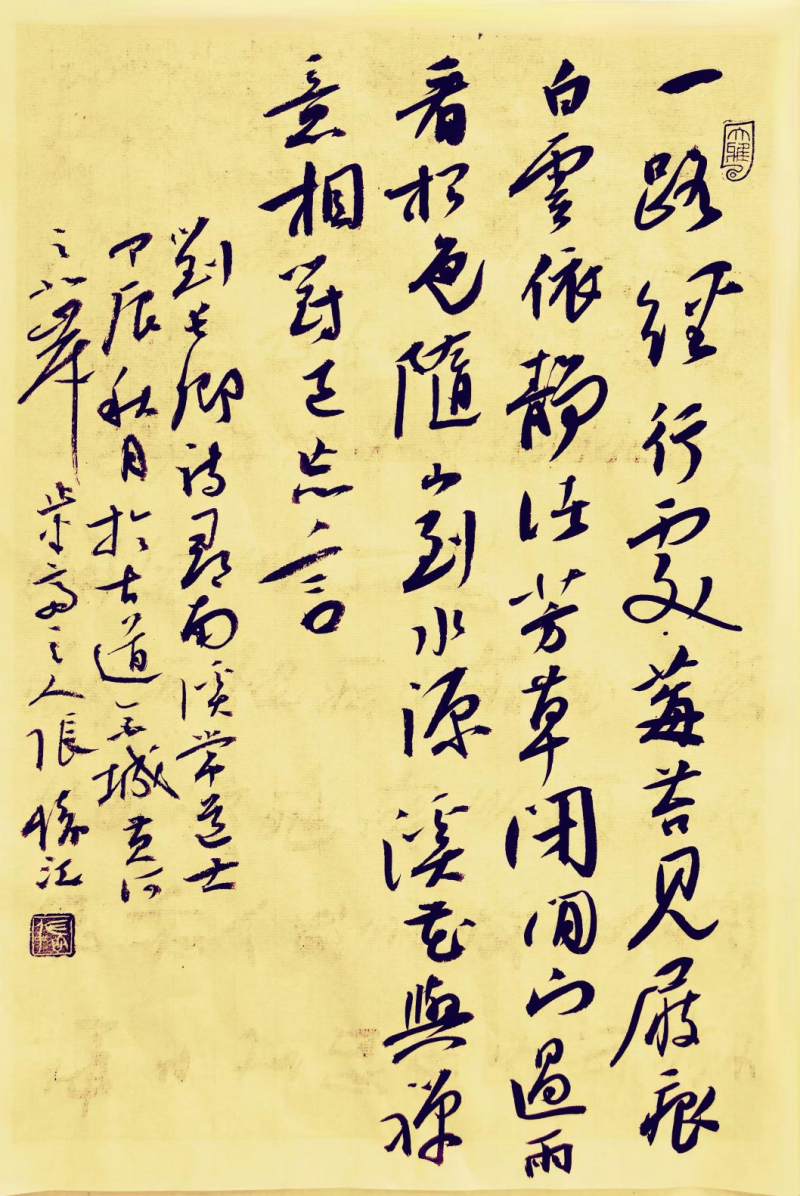 大雅
一路經行處莓苔見屐痕
白雲依靜渚芳草閉閒門過雨
看松色隨山到水源溪花與禪
意相對亦忘言
劉長卿詩尋南溪常道士
甲辰秋月於古道城黄河
之北岸齋主人張江